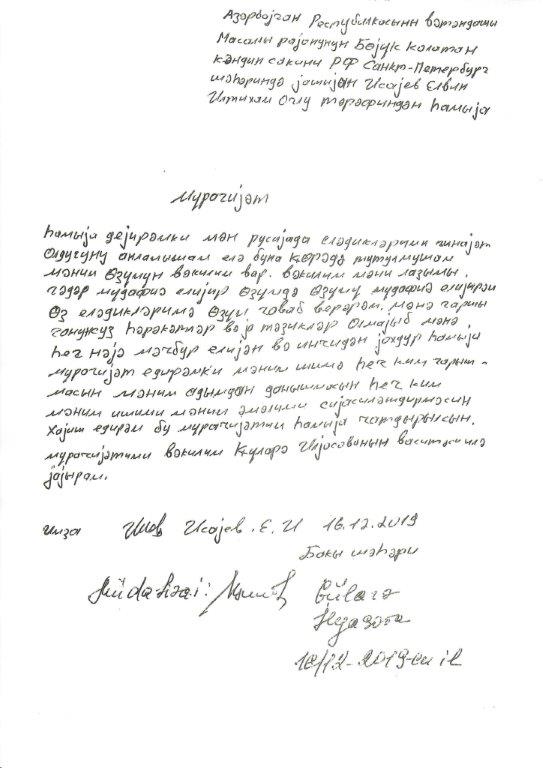 Азәрбајҹан Республикасынн вәтәндашы
Масалы рајонунун Бөјүк колатан
кәндин сакини РФ Санкт-Петербург
шәһәриндә јашијан Исајев Елвин
Илтихам Оғлу тәрәфиндән һамыја
Мурәҹијәт
һамыја дејирәмки мән русијада еләдикләрими ҹинајәт
олдуғуну анламышам елә буна көрәдә тутулмушам
мәним өзүмүн вәкилим вар. вәкилим мәни лазымы.
гәдәр мудафиә елијир өзүмдә өзүмү мудафиә елијирәм
өз еләдикләримә өзүм ҹаваб верәрәм. мәнә гаршы
ганунсуз һәрәкәтләр вәјә тәзикләр олмајыб мәнә
һеч нәјә мәҹбур елијән вә инҹидән јохдур һамыја
мурәҹијәт едирәмки мәним ишимә һеч ким гарыш-
масын мәним адымдан данышмасын һеч ким
мәним ишими мәним әмәлими сијасиләшдирмәсин
хаһиш едирәм бу мурәҹијәтими һамыја чатдырасын.
мурәҹијәтими вәкилим Күларә Илјасованын васитәсилә
јајырам.
имза Исајев. Е. И 16.12.2019
Бакы шәһәри
Müdafiəçi: Gülarə
İlyasova
16/12-2019-cu il